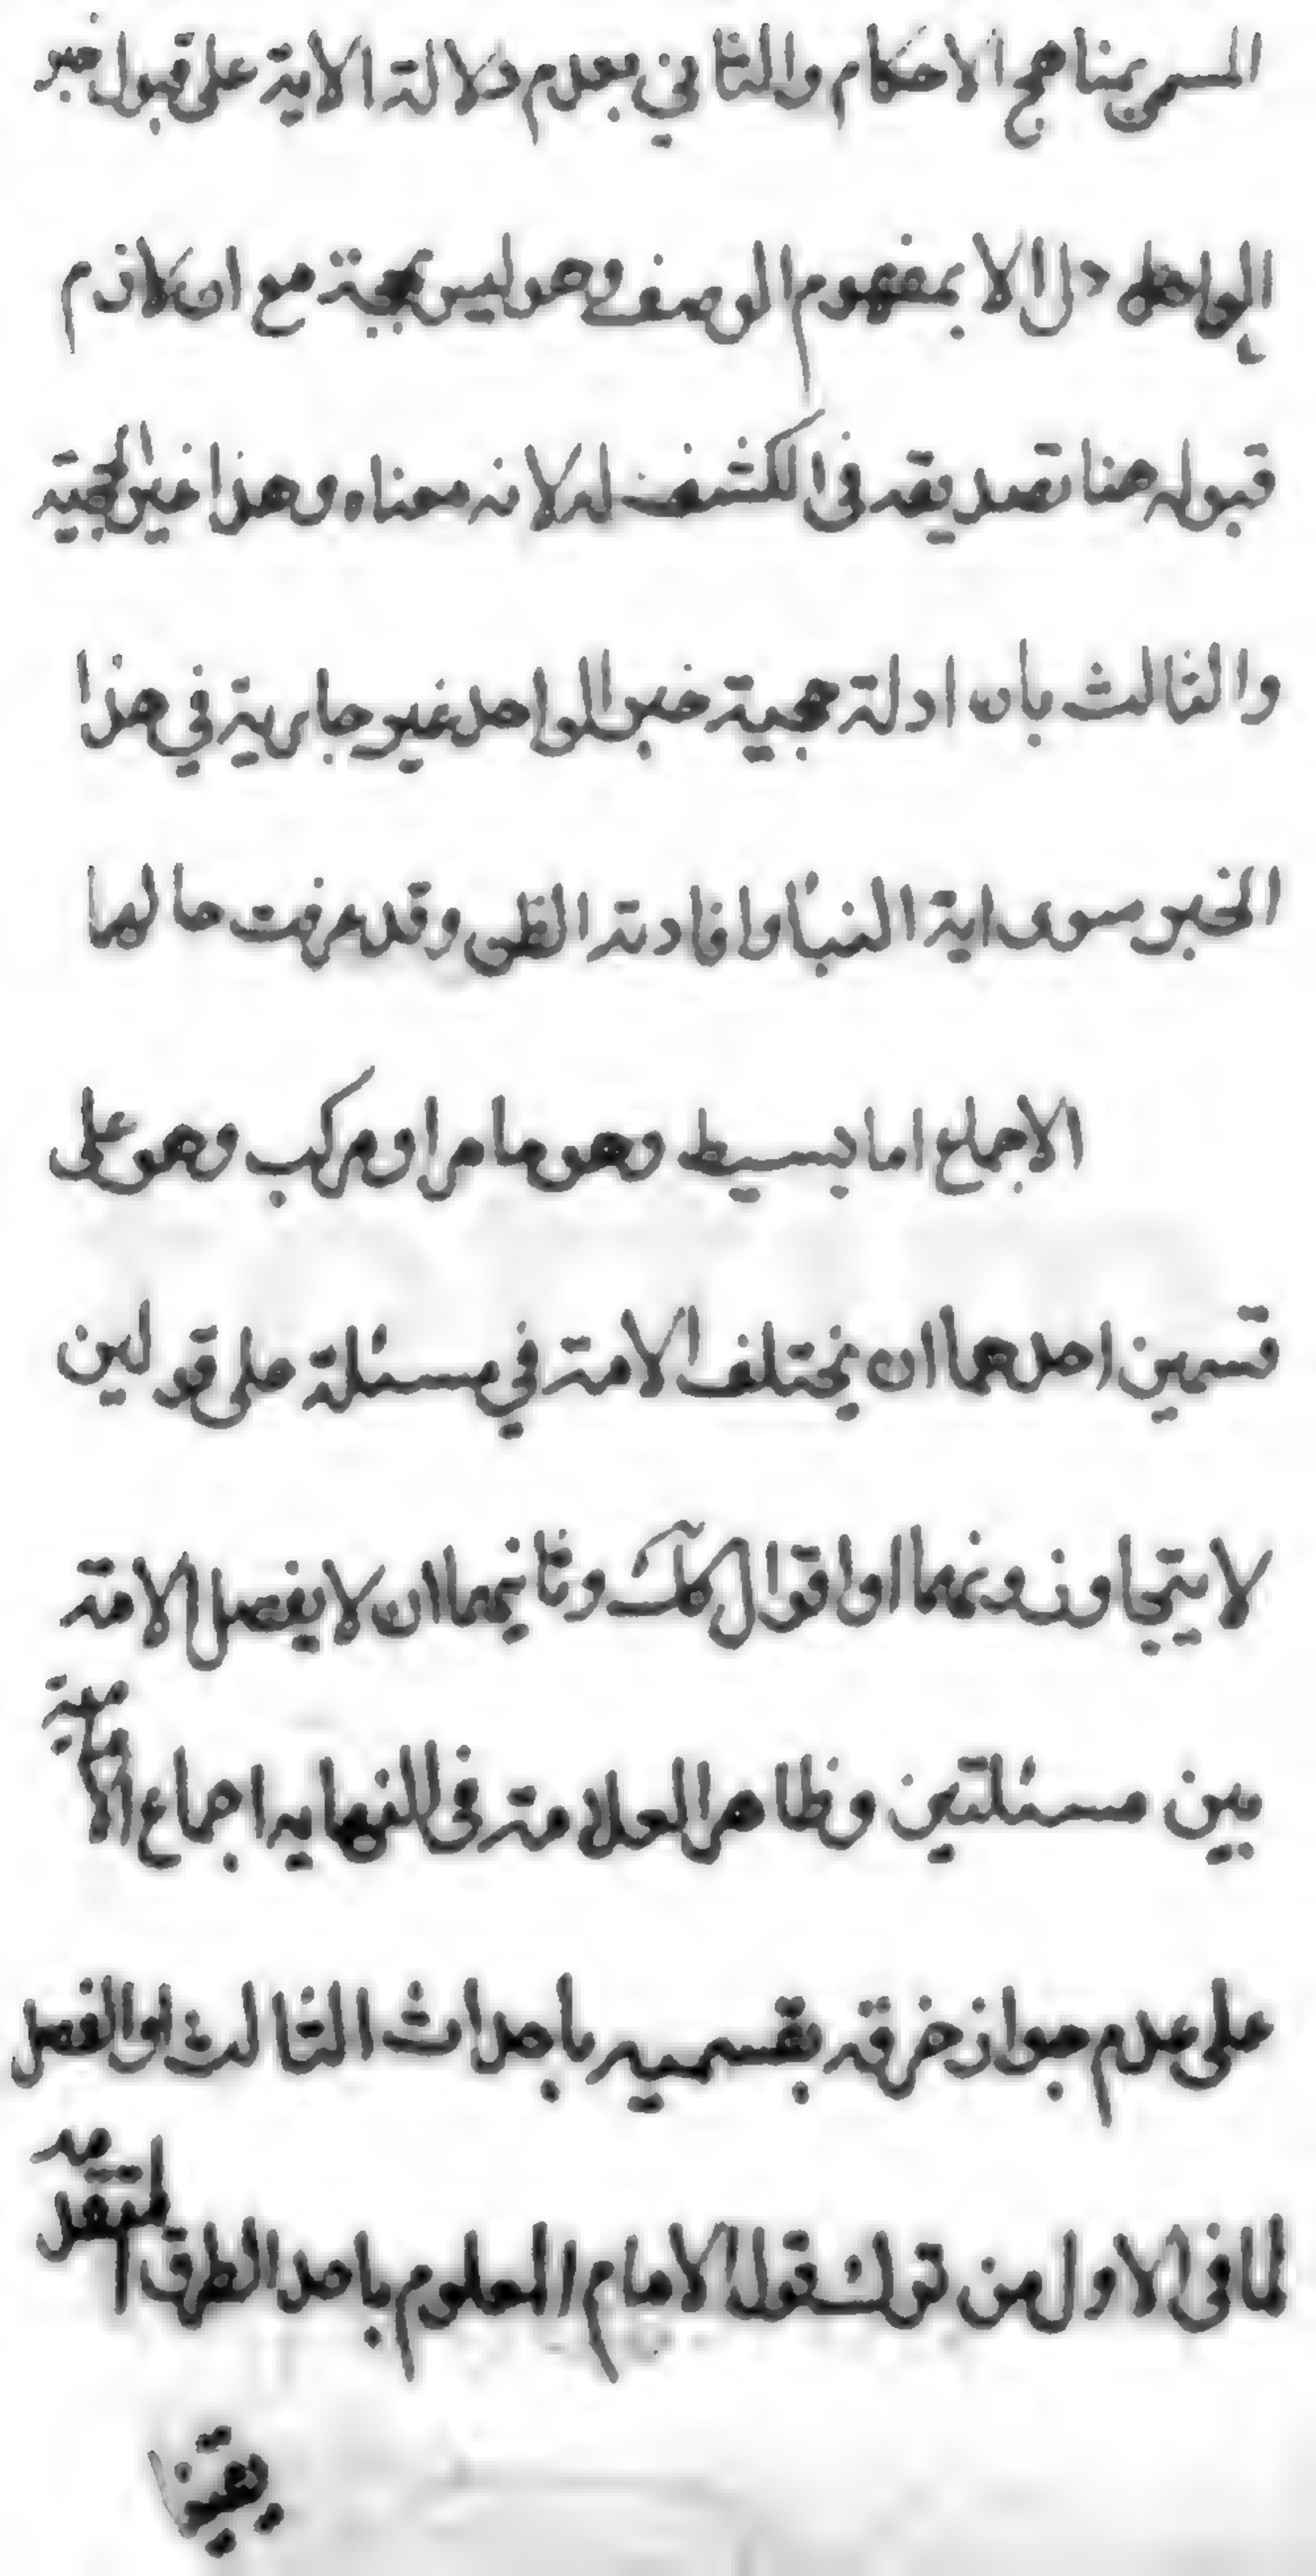 المسمى بمناهج الاحكام والثاني بعدم دلالة الاية على قبول خبر
الواحد دل الا بمفهوم الوصف وهو ليس بحجة مع ان لازم
قبوله هنا تصديقه في الكشف له لانه معناه وهذا غير الحجية
والثالث بأن ادلة حجية خبر الواحد غير جارية في هذا
الخبر سوى اية النبأ وافادته الظن وقد عرفت حالهما
الاجماع اما بسيط وهو ما مر او مركب وهو على
قسمين احدهما ان يختلف الامة في مسئلة على قولين
لا يتجاوزونهما او اقوال كك وثانيهما ان لا يفصل الامة
بين مسئلتين وظاهر العلامة في النهايه اجماع الامامية
على عدم جواز خرقه بقسميه باحداث الثالث او الفصل
لما في الاول من ترك قول الامام المعلوم باحد الطرق المتقدمه
يقينا